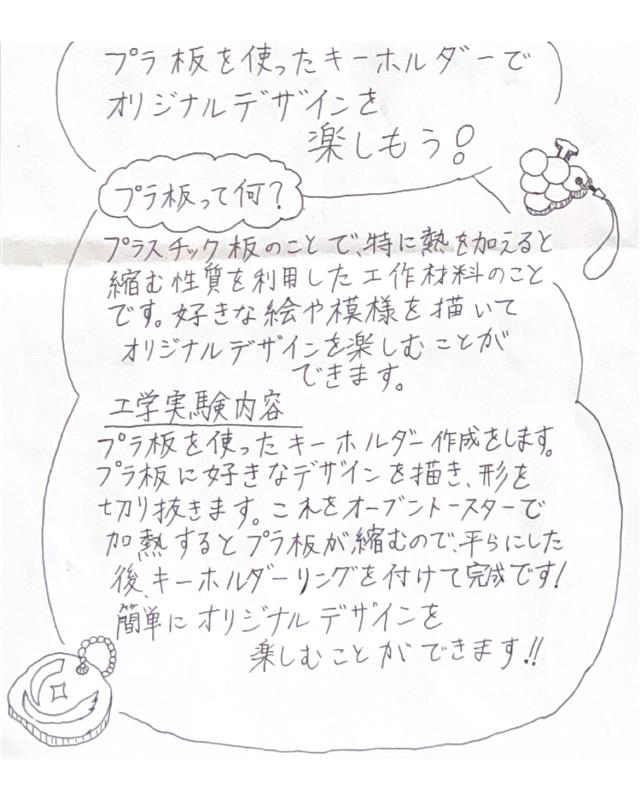 プラ板を使ったキーホルダーで
オリジナルデザインを
楽しもう!
プラ板って何?
プラスチック板のことで、特に熱を加えると
縮む性質を利用した工作材料のこと
です。好きな絵や模様を描いて
オリジナルデザインを楽しむことが
できます。
工学実験内容
プラ板を使ったキーホルダー作成をします。
プラ板に好きなデザインを描き、形を
切り抜きます。これをオーブントースターで
加熱するとプラ板が縮むので、平らにした
後、キーホルダーリングを付けて完成です!
簡単にオリジナルデザインを
楽しむことができます!!